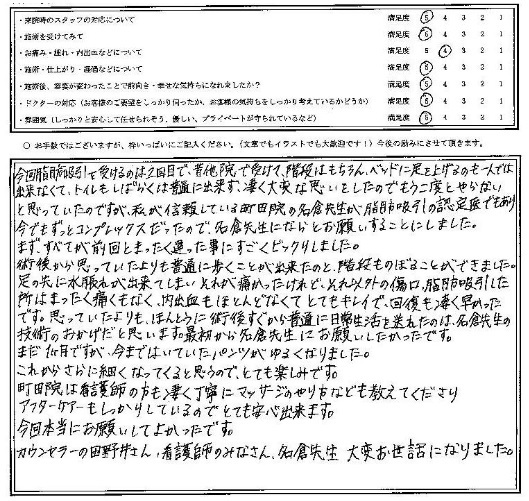 ・来院時のスタッフの対応について 満足度 5 4 3 2 1
・施術を受けてみて 満足度 5 4 3 2 1
・お痛み・腫れ・内出血などについて 満足度 5 4 3 2 1
・施術・仕上がり・経過などについて 満足度 5 4 3 2 1
・施術後、容姿が変わったことで前向き・幸せな気持ちになれましたか？ 満足度 5 4 3 2 1
・ドクターの対応（お客様のご要望をしっかり伺ったか、お客様の気持ちをしっかり考えているかどうか） 満足度 5 4 3 2 1
・雰囲気（しっかりと安心して任せられそう、優しい、プライベートが守られているなど） 満足度 5 4 3 2 1
○ お手数ではございますが、枠いっぱいにご記入ください。（文章でもイラストでも大歓迎です！）今後の励みにさせて頂きます。
今回脂肪吸引を受けるのは2回目で、昔他院で受けて、階段はもちろん、ベッドに足を上げるのも一人では
出来なくて、トイレもしばらくは普通に出来ず、凄く大変な思いをしたのでもう二度とやらない
と思っていたのですが、私が信頼している町田院の名倉先生が、脂肪吸引の認定医でもあり
今でもずっとコンプレックスだったので、名倉先生にならとお願いすることにしました。
まず、すべてが前回とまったく違った事にすごくビックリしました。
術後から思っていたよりも普通に歩くことが出来たのと、階段ものぼることができました。
足の先に水脹れが出来てしまいそれが痛かったけれど、それ以外の傷口、脂肪吸引した
所はまったく痛くもなく、内出血もほとんどなくてとてもキレイで、回復も凄く早かった
です。思っていたよりも、ほんとうに術後すぐから普通に日常生活を送れたのは、名倉先生の
技術のおかげだと思います。最初から名倉先生にお願いしたかったです。
まだ1ヶ月ですが、今まではいていたパンツがゆるくなりました。
これからさらに細くなってくると思うので、とても楽しみです。
町田院は看護師の方も凄く丁寧にマッサージのやり方なども教えてくださり
アフターケアーもしっかりしているのでとても安心出来ます。
今回本当にお願いしてよかったです。
カウンセラーの田野井さん、看護師のみなさん、名倉先生 大変お世話になりました。